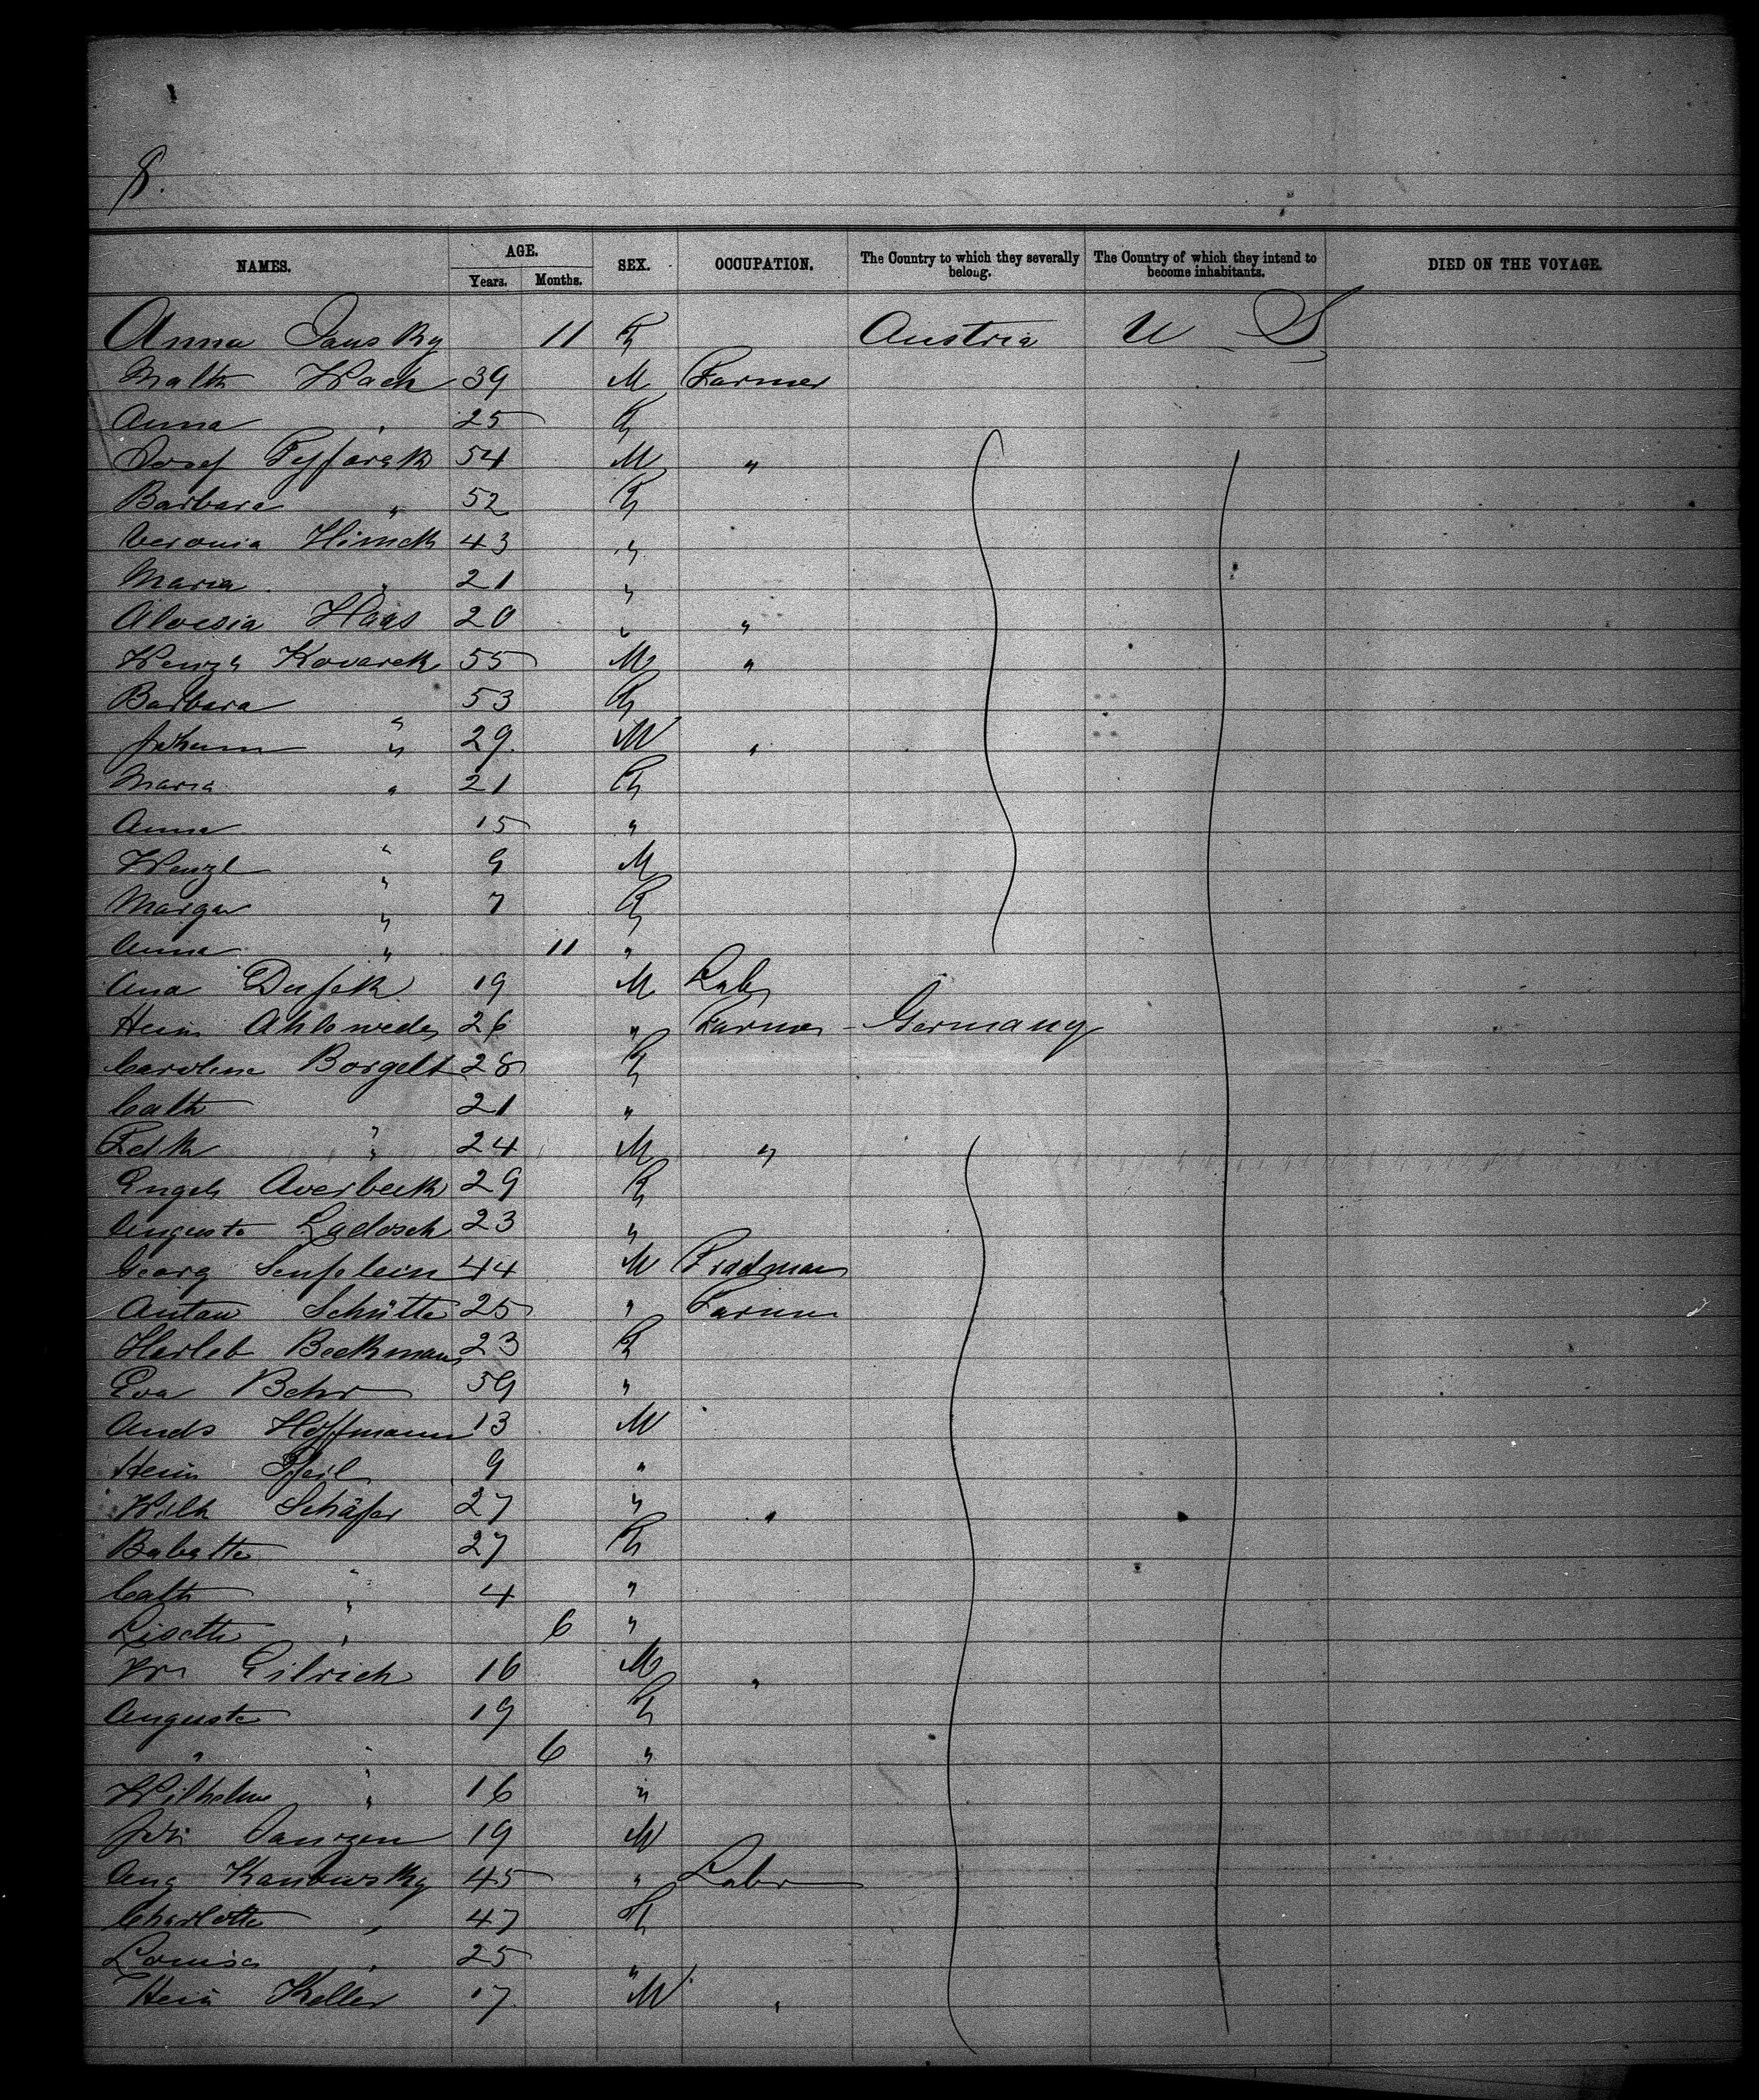 8.
NAMES. AGE. SEX. OCCUPATION. The Country to which they severally belong. The Country of which they intend to become inhabitants. DIED ON THE VOYAGE.
Years. Months.
Anna Jansky 11 F Austria U S
Math Wach 39 M Farmer
Anna " 25 F
Josef 54 M "
Barbara " 52 F
Veronia 43 "
Maria " 21 "
Aloesia Haas 20 " "
Wenzl Kovarek 55 M "
Barbara " 53 F
Johann " 29 M "
Maria " 21 F
Anna " 15 "
Wenzl " 9 M
Margar " 7 F
Anna " 11 "
Ana Dufek 19 M Labr
Hein Ahlowedes 26 " Farmer Germany
Caroline Borgelt 28 F
Cath " 21 "
Fedk " 24 M "
Engels Averbeck 29 F
Auguste Ladosch 23 "
Georg Senflein 44 M
Anton Schütte 25 " Farmer
Beckmann 23 F
Eva Behr 59 "
Ands Hoffmann 13 M
Hein Pfeil 9 "
Wilh Schäfer 27 " "
Babette " 27 F
Cath " 4 "
Lisette " 6 "
Wm Eilrich 16 M "
Auguste " 19 F
" " 6 "
Wilhelm " 16 "
Joh Janzen 19 M
Aug 45 " Labr
Charlotte " 47 F
Louisa " 25 "
Hein Keller 17 M "